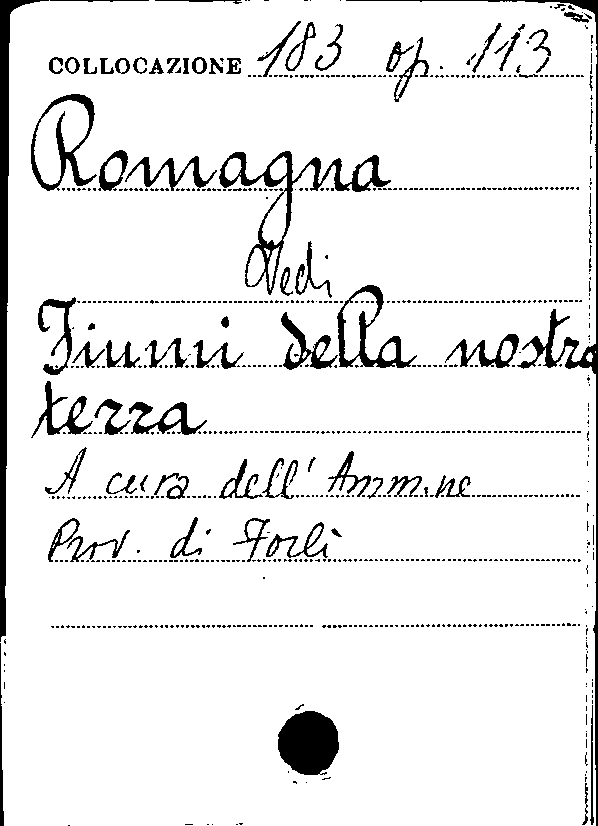 COLLOCAZIONE 183 op. 113
Romagna
Vedi
Fiumi della nostra
terra
A cura dell' Amm.ne
Prov. di Forlì